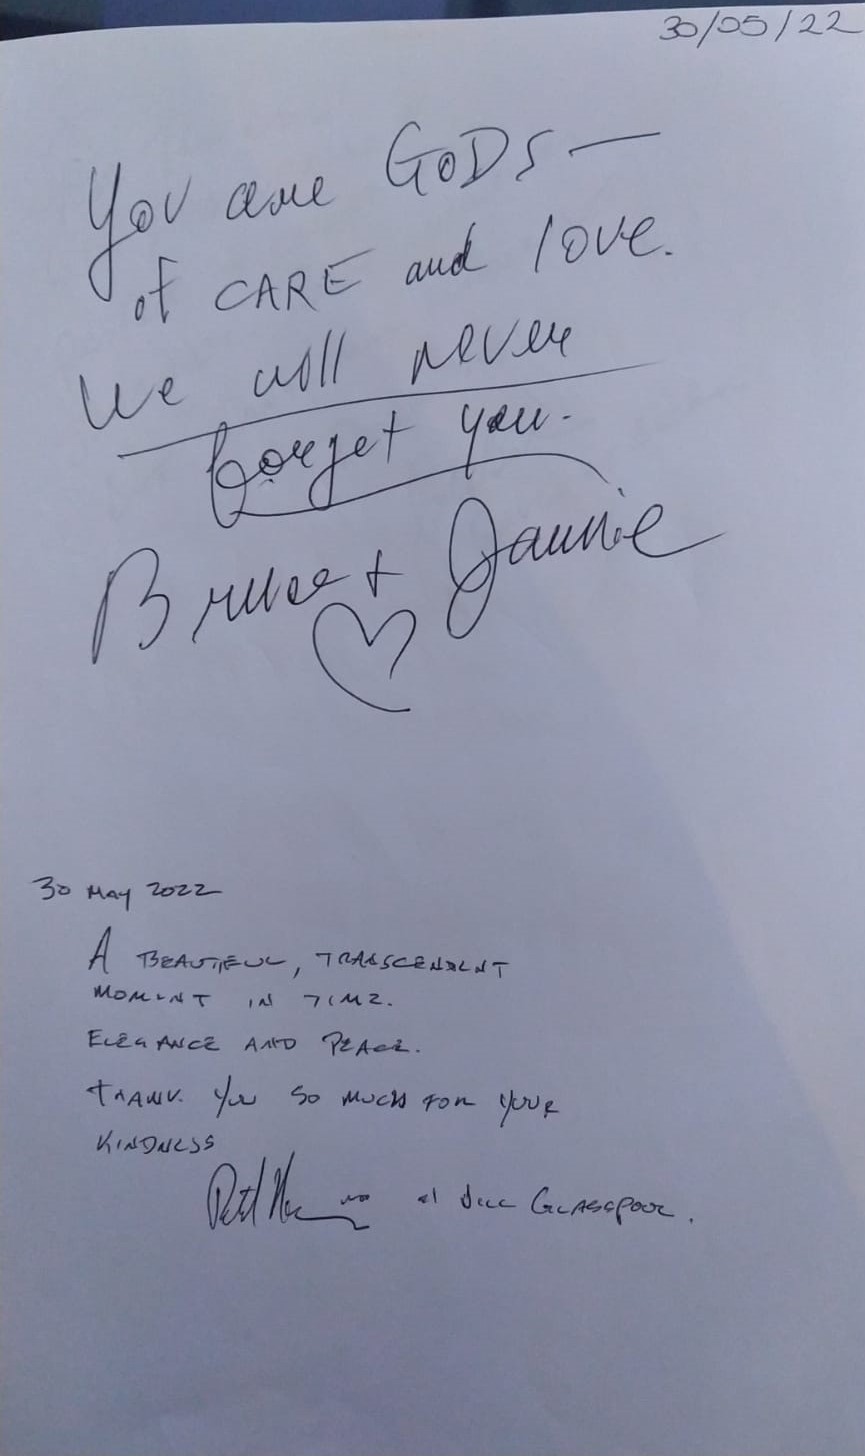 30/05/22
You are GODS —
of CARE and love.
We will never
forget you.
Bruce + Jannie
30 May 2022
A BEAUTIFUL, TRANSCENDENT
MOMENT IN TIME.
ELEGANCE AND PEACE.
THANK YOU SO MUCH FOR YOUR
KINDNESS
GLASSPOOL.